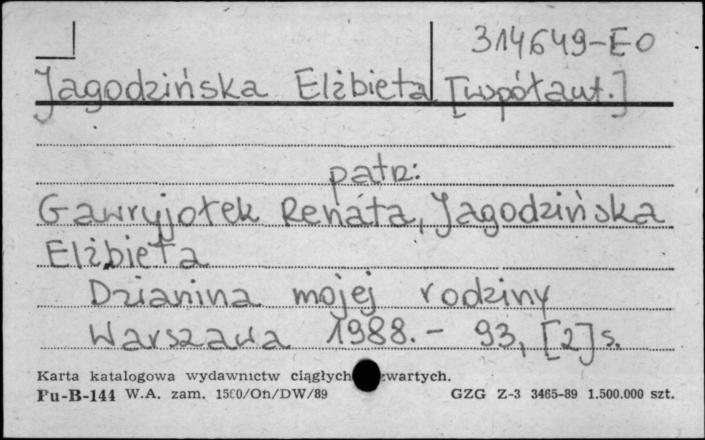 314649-EO
Jagodzińska Elżbieta [współaut.]
patrz:
Gawryjołek Renata, Jagodzińska
Elżbieta
Dzianina mojej rodziny
Warszawa 1988.- 93, [2] s.
Karta katalogowa wydawnictw ciągłych zwartych.
Pu-B-144 W.A. zam. 1500/On/DW/89 GZG Z-3 3465-89 1.500.000 szt.